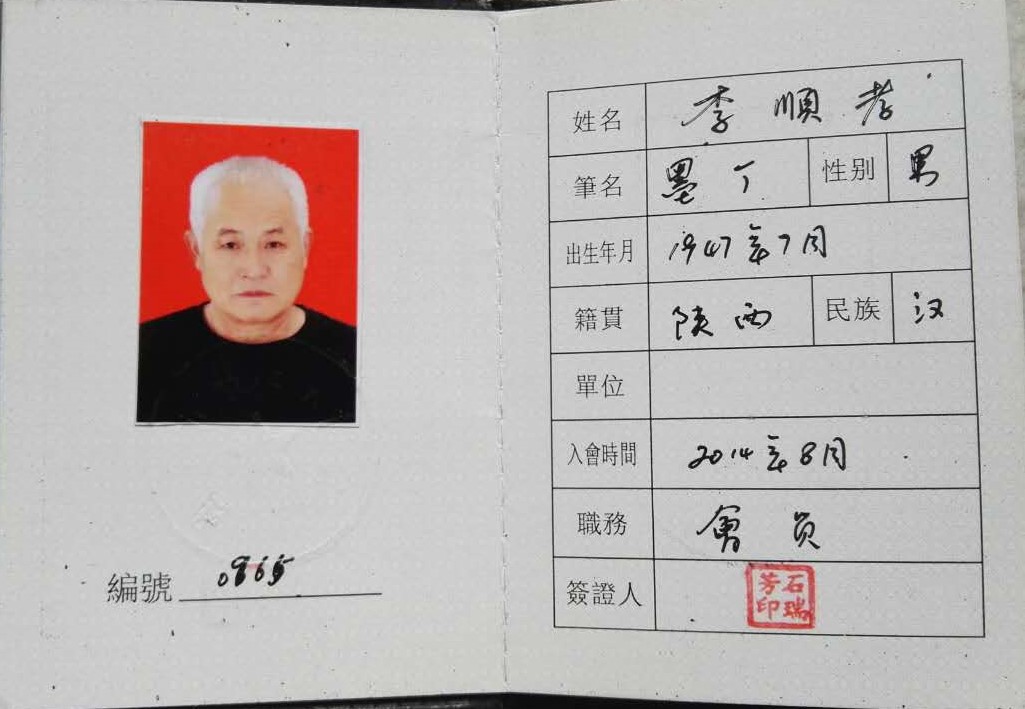 編號 0965
姓名 李順孝
筆名 墨丁 性别 男
出生年月 1947年7月
籍貫 陕西 民族 汉
單位
入會時間 2014年8月
職務 會員
簽證人 石瑞芳印